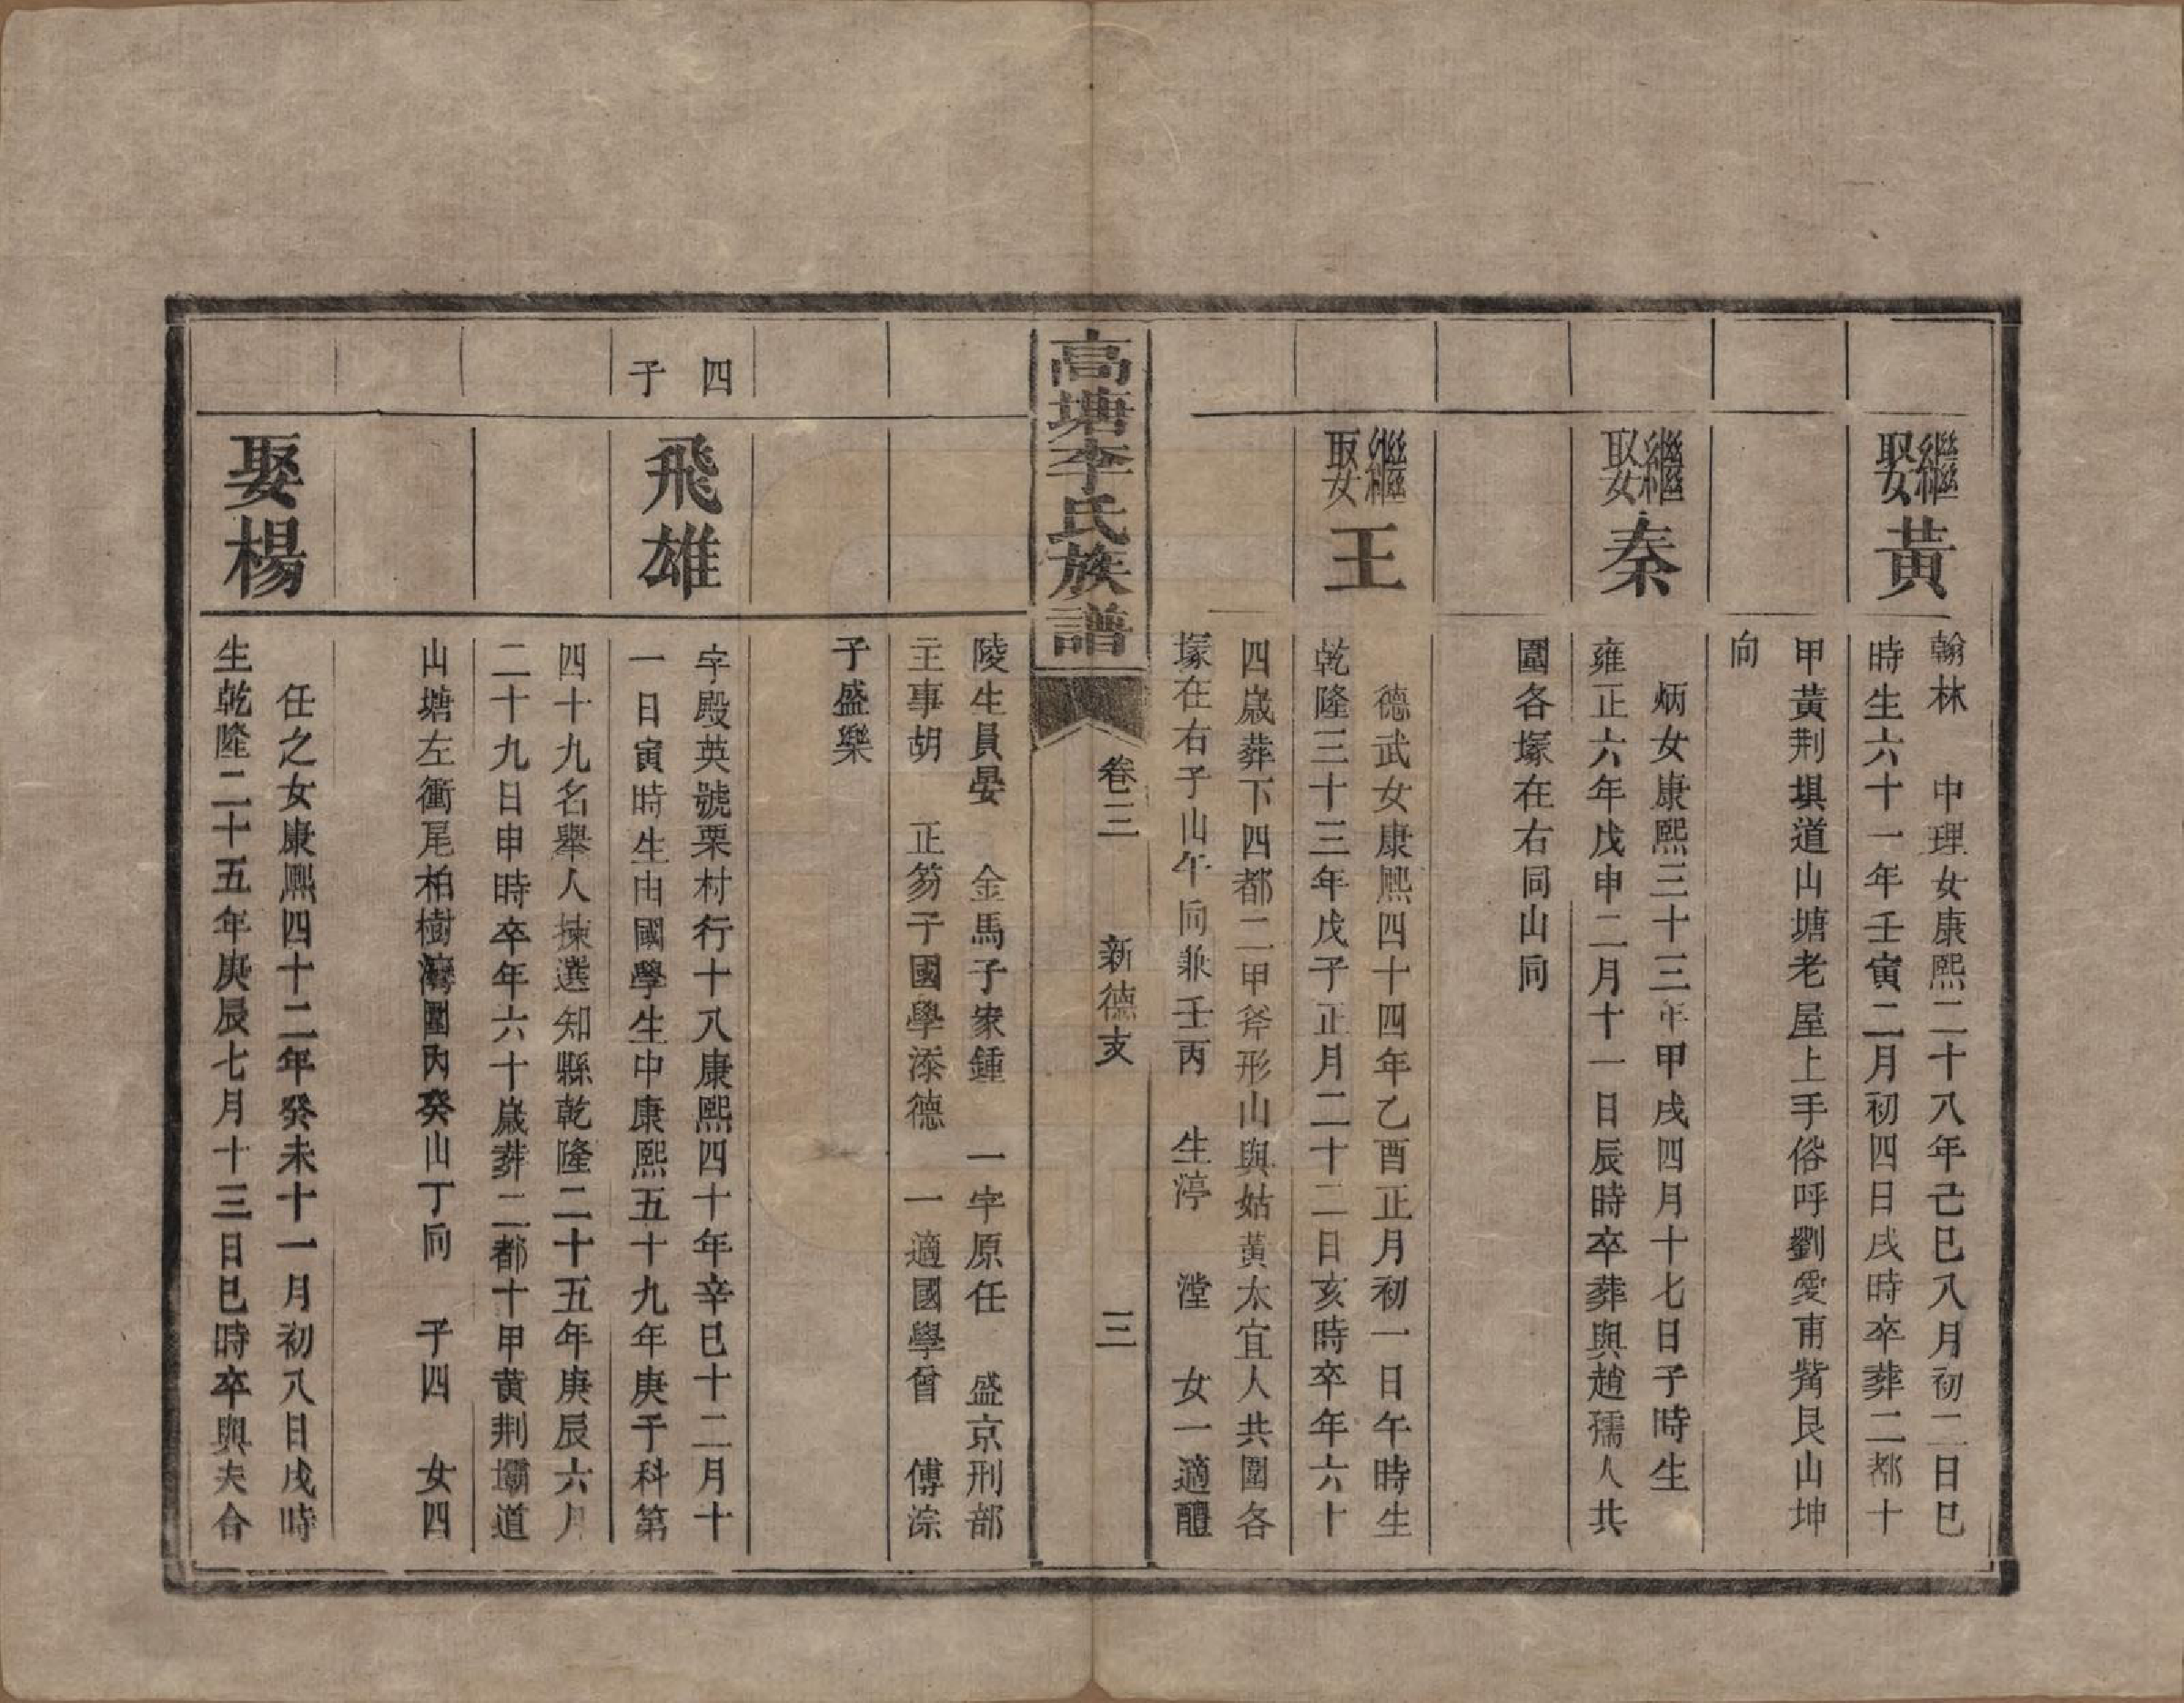 繼娶黃
翰林　中理女康熙二十八年己巳八月初二日巳
時生六十一年壬寅二月初四日戌時卒葬二都十
甲黃荆塤道山塘老屋上手俗呼劉愛甫觜艮山坤
向
繼娶秦
炳女康熙三十三年甲戌四月十七日子時生
雍正六年戊申二月十一日辰時卒葬與趙孺人共
圍各塚在右同山同
繼娶王
德武女康熙四十四年乙酉正月初一日午時生
乾隆三十三年戊子正月二十二日亥時卒年六十
四歲葬下四都二甲斧形山與姑黃太宜人共圍各
塚在右子山午向兼壬丙　生渟　漟　女一適醴
高塘李氏族譜　卷三　新德支　三
陵生員晏　金馬子家鍾　一字原任　盛京刑部
主事胡　正笏子國學添德　一適國學曾　傅淙
子盛樂
四子
飛雄
字殿英號栗村行十八康熙四十年辛巳十二月十
一日寅時生由國學生中康熙五十九年庚子科第
四十九名舉人揀選知縣乾隆二十五年庚辰六月
二十九日申時卒年六十歲葬二都十甲黃荆壩道
山塘左衝尾柏樹灣圍內癸山丁向　子四　女四
娶楊
任之女康熙四十二年癸未十一月初八日戌時
生乾隆二十五年庚辰七月十三日巳時卒與夫合